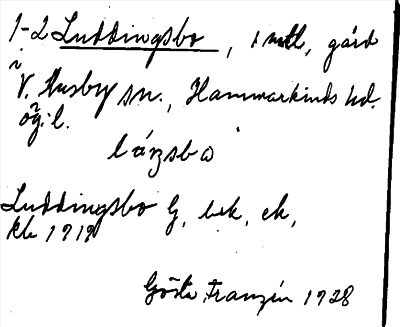 1-2 Luddingsbo, 1 mtl, gård
i
V. Husby sn., Hammarkinds hd.
Ög. l.
Luddingsbo G, bek, ek,
kb 1919
Gösta Franzén 1928